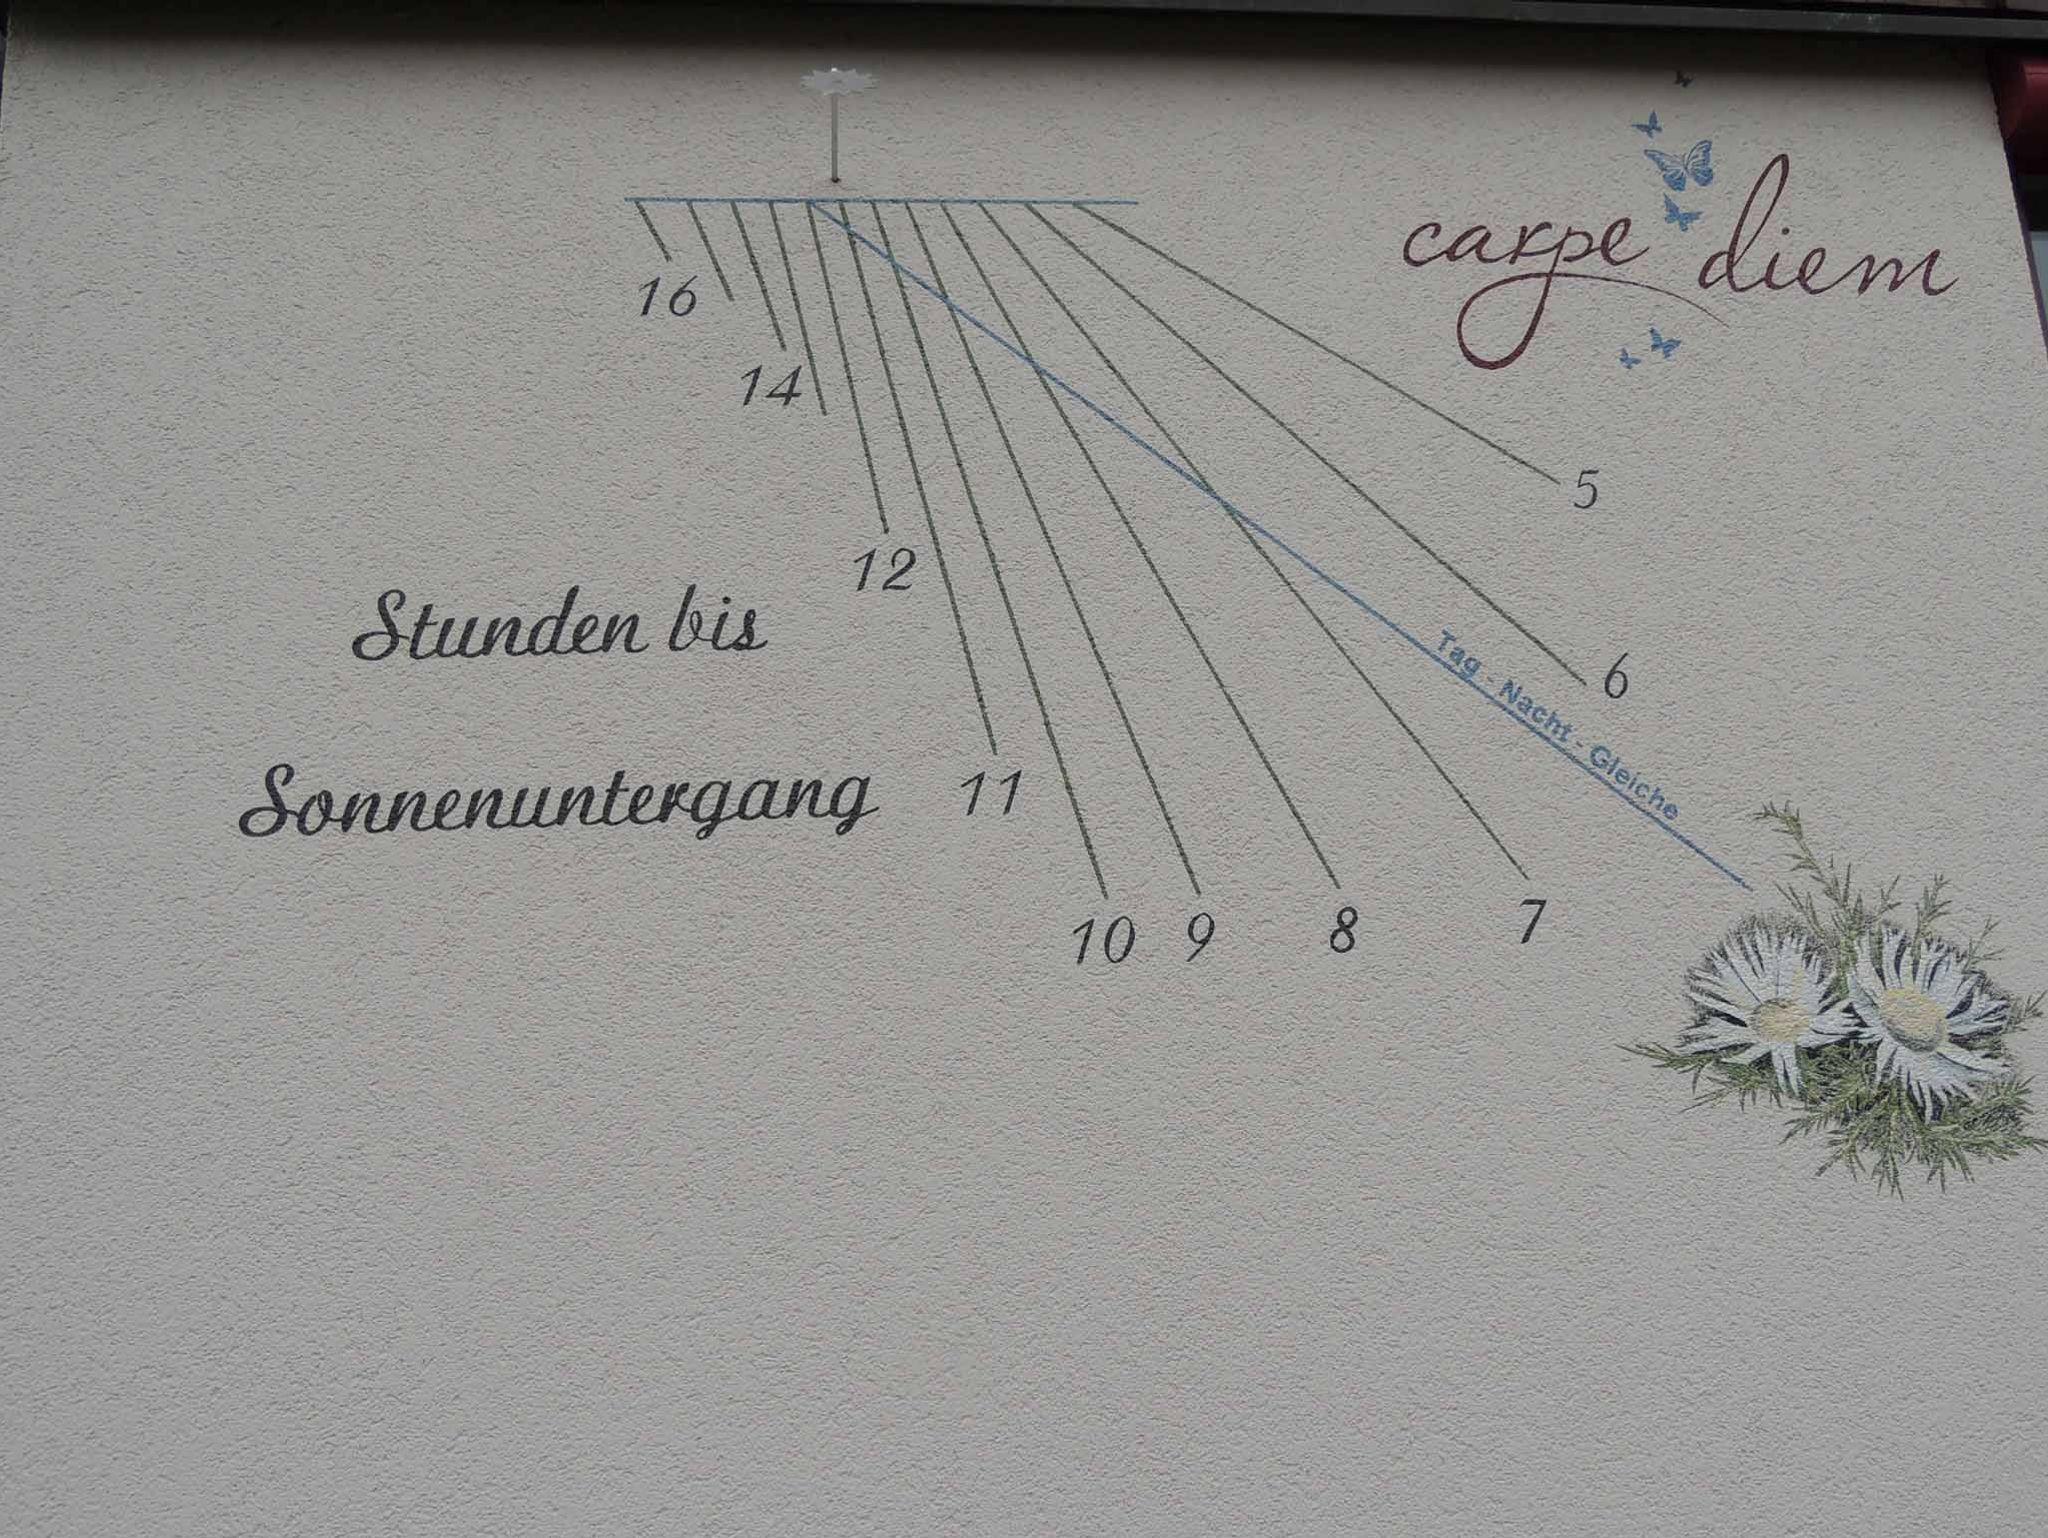 carpe diem
16
14
5
12
Stunden bis
6
Tag - Nacht - Gleiche
Sonnenuntergang
11
10 9 8 7